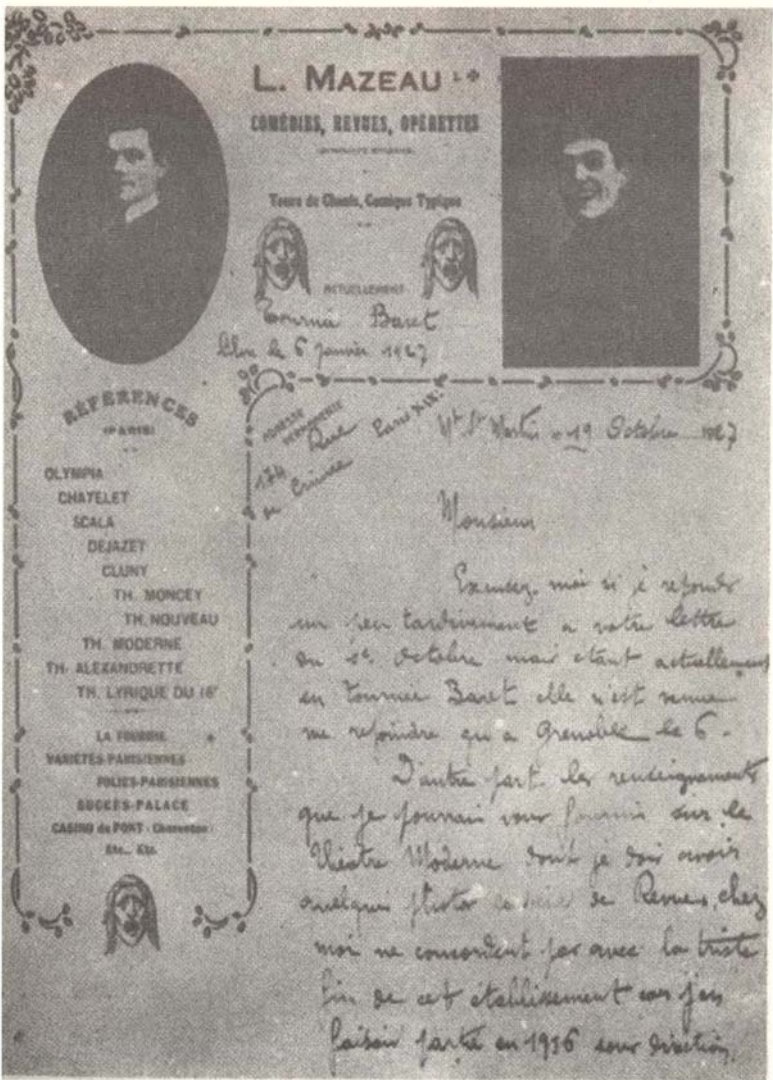 L. MAZEAU
COMÉDIES, REVUES, OPÉRETTES
Tours de Chants, Comique Typique
ACTUELLEMENT
Tournée Baret
le 6 Janvier 1927
RÉFÉRENCES
(PARIS)
OLYMPIA
CHATELET
SCALA
DEJAZET
CLUNY
TH. MONCEY
TH. NOUVEAU
TH. MODERNE
TH. ALEXANDRETTE
TH. LYRIQUE DU 16e
LA FOURMI
VARIÉTÉS-PARISIENNES
FOLIES-PARISIENNES
SUCCÈS-PALACE
CASINO du PONT (Charenton)
Etc... Etc.
ADRESSE
PERMANENTE
174 Rue
de Crimée Paris XIX.
Mt St Martin 19 Octobre 1927
Monsieur
Excusez moi si je reponds
un peu tardivement a votre lettre
du 1er Octobre mais etant actuellement
en Tournée Baret elle n'est venue
me rejoindre qu'a Grenoble le 6.
D'autre part les renseignements
que je pourrai vous fournir sur le
Théatre Moderne dont je dois avoir
quelques photos de Revues, chez
moi ne concordent pas avec la triste
fin de cet établissement car j'en
faisais partie en 1916 sous direction